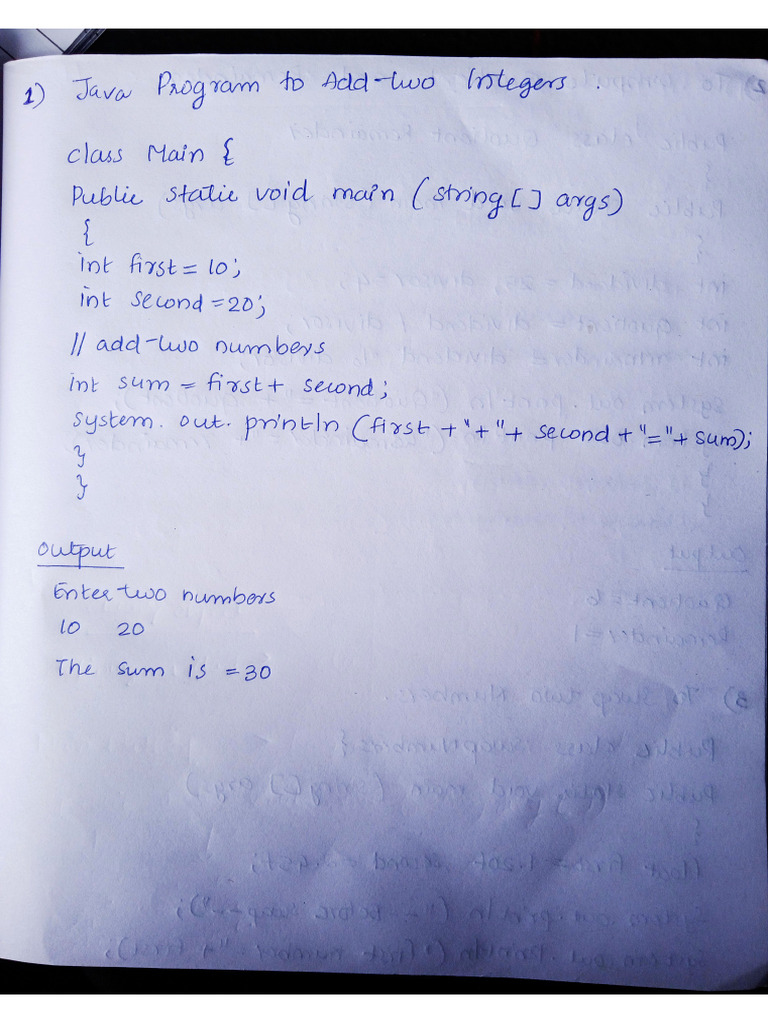 1) Java Program to Add-two Integers.
class Main {
Public static void main (string[] args)
{
int first = 10;
int second = 20;
// add-two numbers
int sum = first + second;
system. out. println (first + "+" + second + "=" + sum);
}
}
Output
Enter two numbers
10 20
The sum is = 30